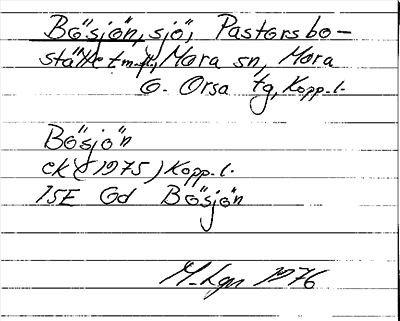 Bösjön, sjö, Pastorsbo-
stället m.fl., Mora sn, Mora
o. Orsa tg, Kopp. l.
Bösjön
ck (1975) Kopp. l.
15E Gd Bösjön
1976